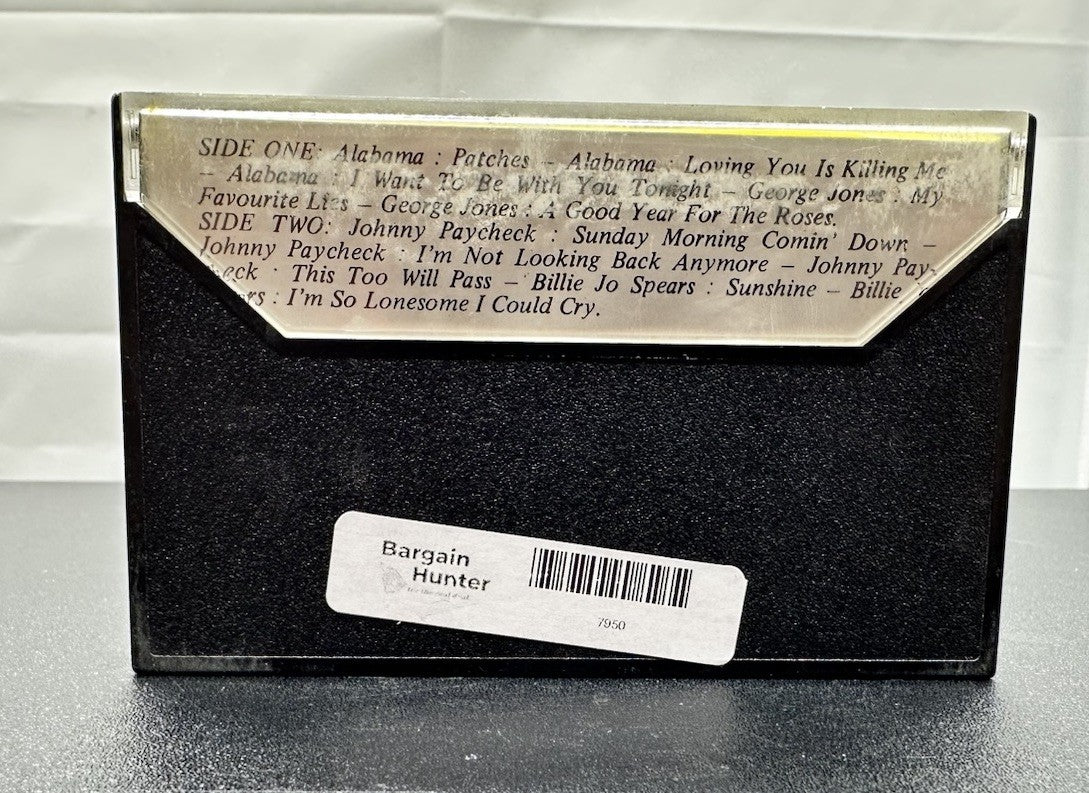 SIDE ONE: Alabama : Patches – Alabama : Loving You Is Killing Me
– Alabama : I Want To Be With You Tonight – George Jones : My
Favourite Lies – George Jones : A Good Year For The Roses.
SIDE TWO: Johnny Paycheck : Sunday Morning Comin' Down –
Johnny Paycheck : I'm Not Looking Back Anymore – Johnny Pay-
check : This Too Will Pass – Billie Jo Spears : Sunshine – Billie
: I'm So Lonesome I Could Cry.
Bargain
Hunter
7950